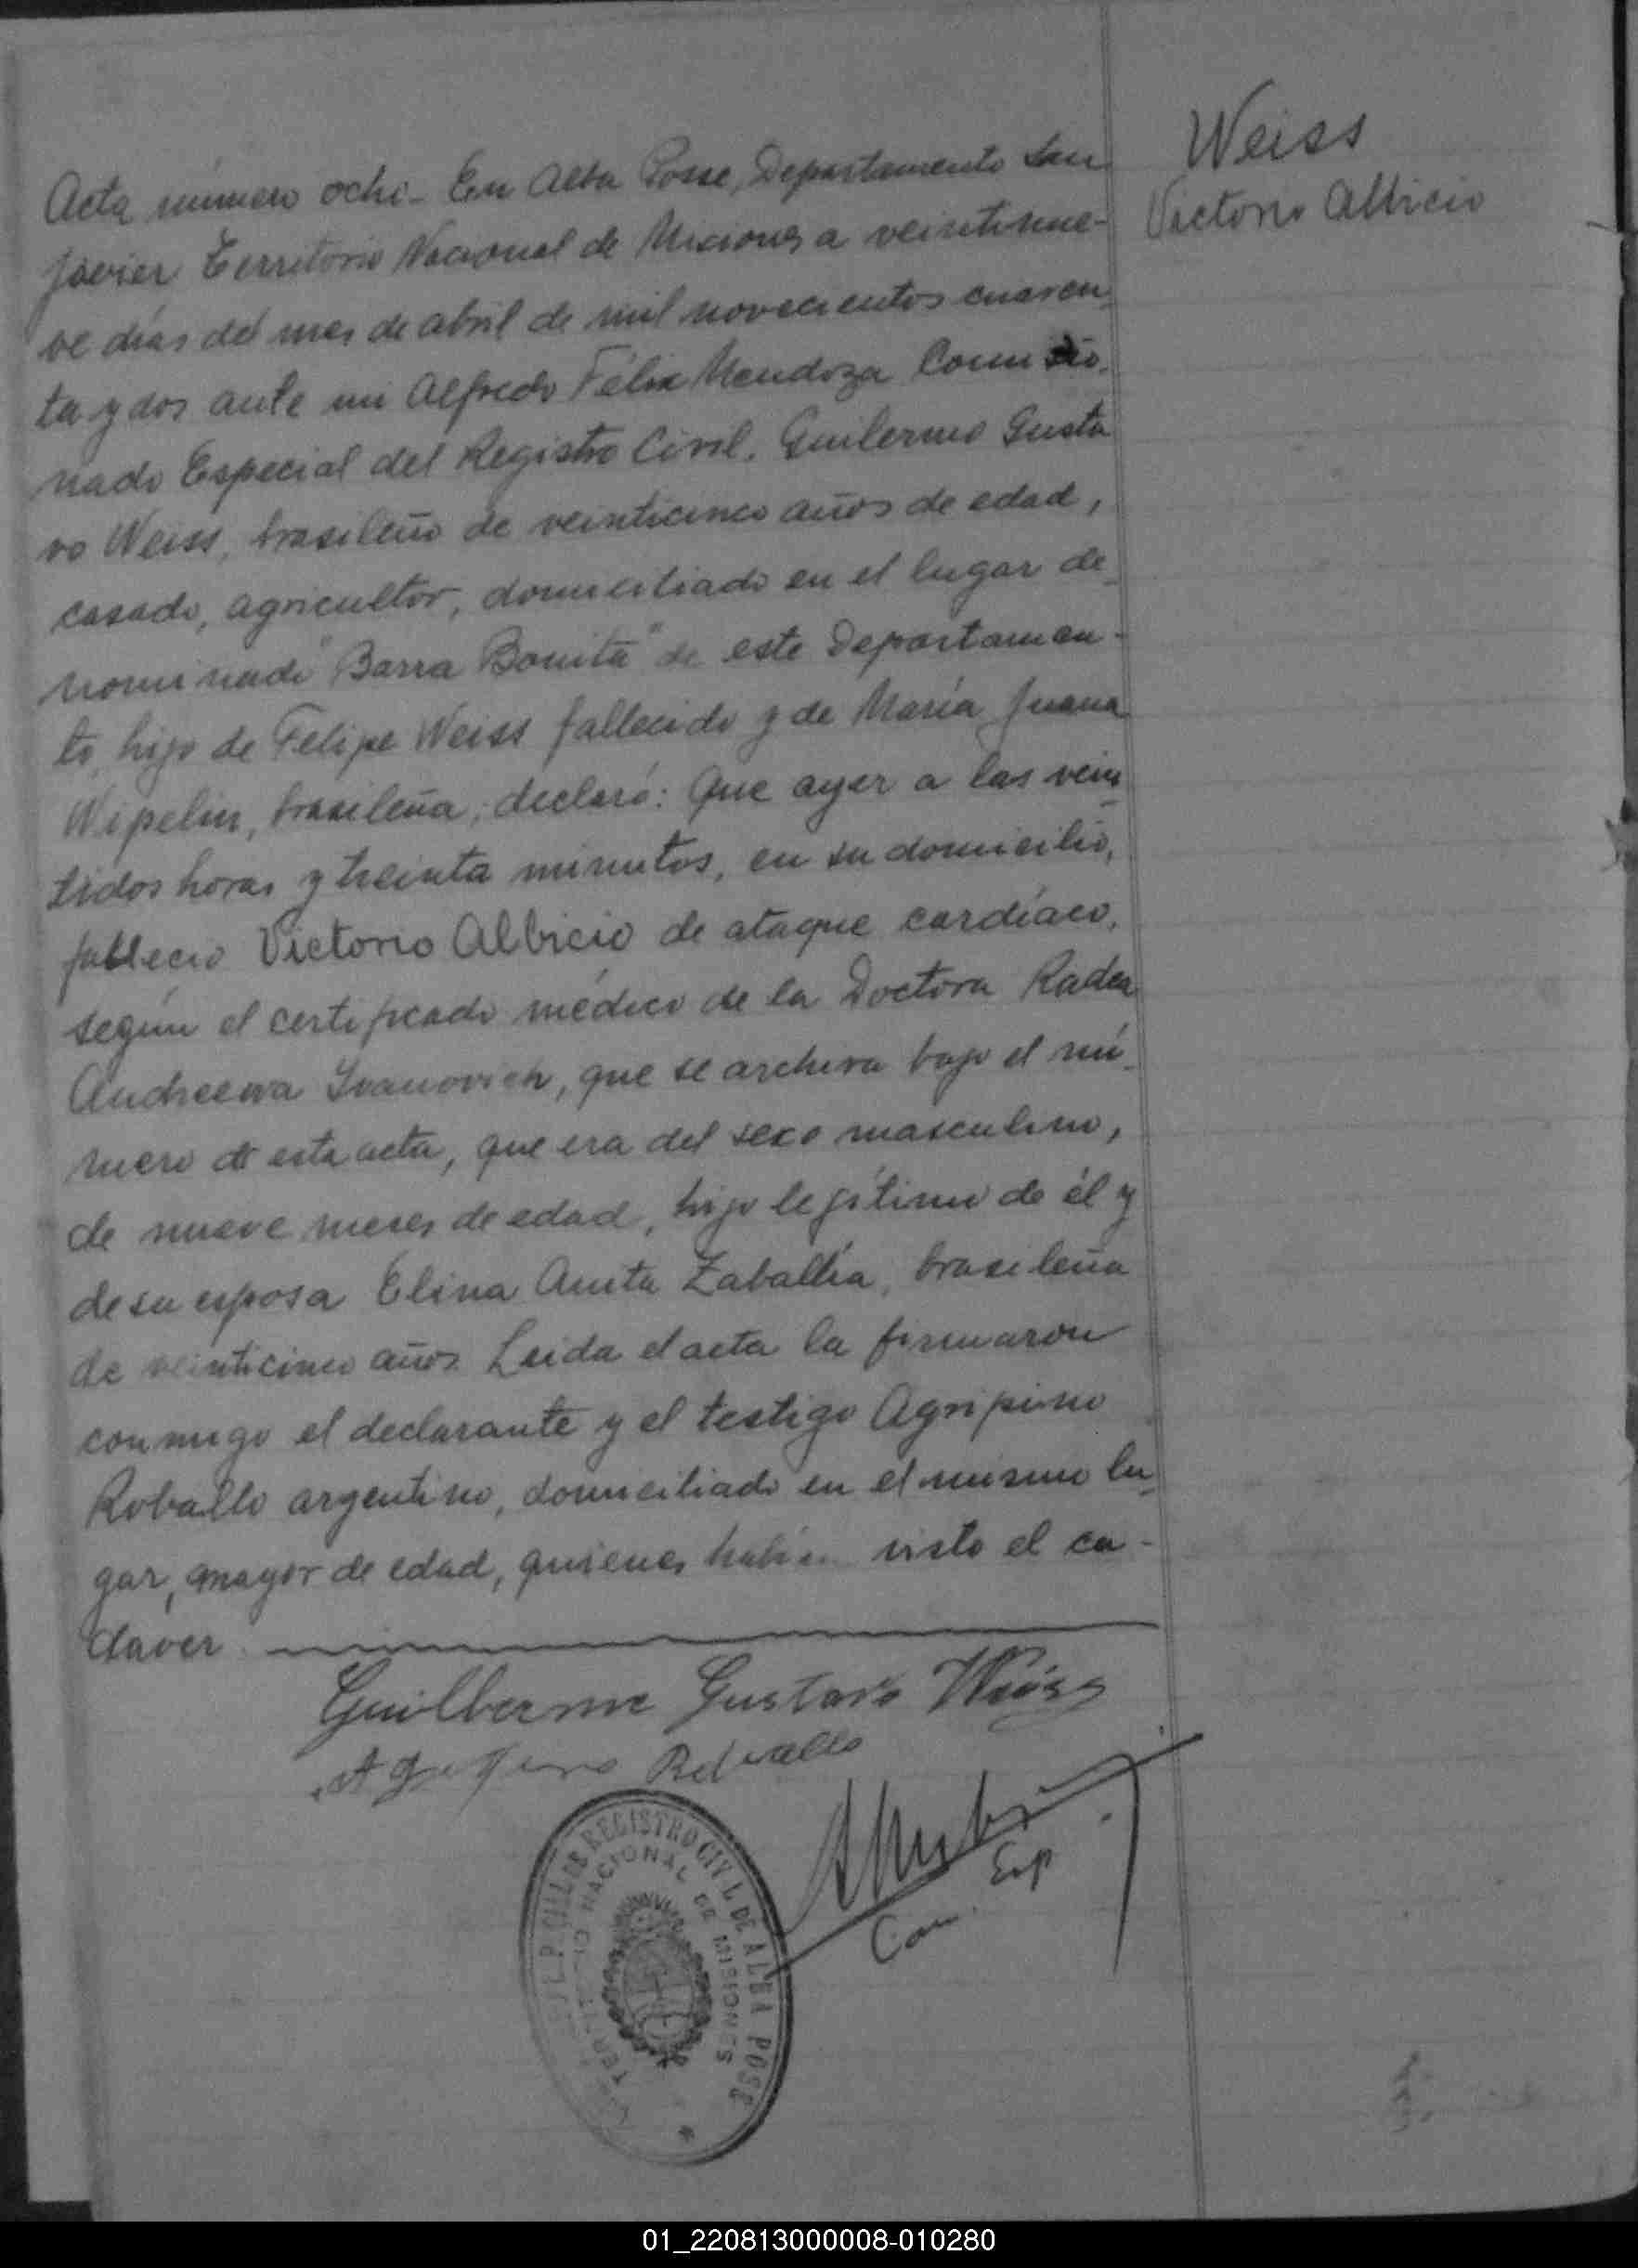 Weiss
Victorio Albicio
Acta número ocho- En Alba Posse, Departamento San
Javier Territorio Nacional de Misiones a veintinue-
ve días del mes de abril de mil novecientos cuaren-
ta y dos ante mi Alfredo Félix Mendoza Comisio-
nado Especial del Registro Civil. Guilermo Gusta
vo Weiss, brasileño de veinticinco años de edad,
casado, agricultor, domiciliado en el lugar de-
nominado "Barra Bonita" de este Departamen-
to, hijo de Felipe Weiss fallecido y de María Juana
Wipelin, brasileña, declaró: Que ayer a las vein
tidos horas y treinta minutos, en su domicilio,
fallecio Victorio Albicio de ataque cardíaco,
según el certificado médico de la Doctora Radea
Andreewa Ivanovich, que se archiva bajo el nú-
mero de esta acta, que era del sexo masculino,
de nueve meses de edad, hijo legítimo de él y
de su esposa Elina Anita Zaballía, brasileña
de veinticinco años. Leida el acta la firmaron
conmigo el declarante y el testigo Agripino
Roballo argentino, domiciliado en el mismo lu-
gar, mayor de edad, quienes habían visto el ca-
daver
Guilherme Gustavo Weiss
Roballo
Com. Esp
REGISTRO CIVIL DE ALBA POSE
TERRITORIO NACIONAL DE MISIONES
01_220813000008-010280